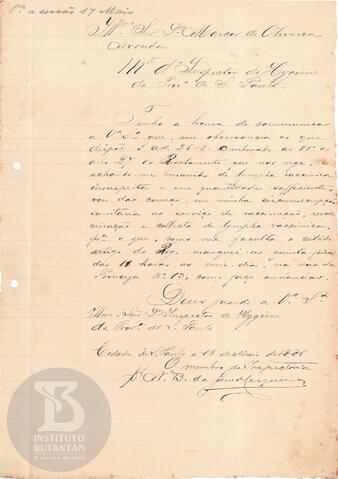 Pa. a sessão 17 Maio
Illmo. Sr. Dr. Marcos de Oliveira
Arruda
M. D. Inspector de Hygiene
da Prova. de S. Paulo.
Tenho a honra de communicar
a Va. Sa. que, em observancia ao que
dispõe o art. 25
art. 27 do Regulamento que nos rege, e
achando-me munido de lympha vaccinica
insuspeita e em quantidade sufficiente,
vou dar começo, em minha circumscripção
sanitaria ao serviço de vaccinação, revac
cinação e collecta de lympha vaccinica,
o que, como me faculta o citado
artigo do Reg. marquei as quinta feiras
das 11 horas ao meio dia, na rua da
Princeza No. 12, como faço annunciar.
Deus guarde a Va. Sa.
Illmo. Snr. Dr. Inspector de Hygiene
da Prova. de S. Paulo
Cidade de S. Paulo a 12 de Maio de 1886
O membro da Inspectoria
Dr. A. B. da
INSTITUTO
BUTANTAN
A serviço da vida